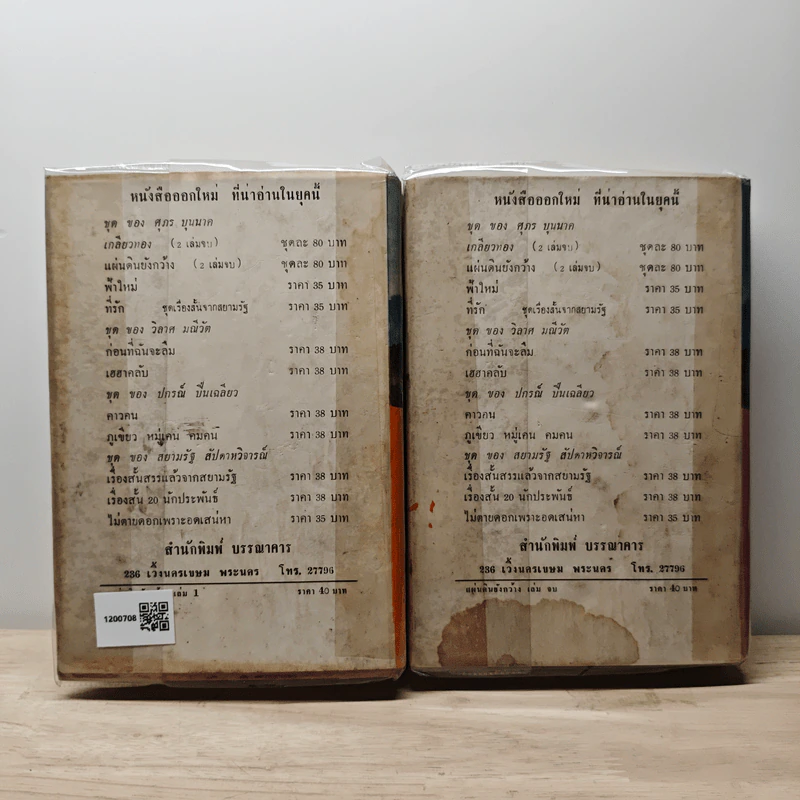 หนังสือออกใหม่ ที่น่าอ่านในยุคนี้
ชุด ของ ศุภร บุนนาค
เกลียวทอง (2 เล่มจบ) ชุดละ 80 บาท
แผ่นดินยังกว้าง (2 เล่มจบ) ชุดละ 80 บาท
ฟ้าใหม่ ราคา 35 บาท
ที่รัก ชุดเรื่องสั้นจากสยามรัฐ ราคา 35 บาท
ชุด ของ วิลาศ มณีวัต
ก่อนที่ฉันจะลืม ราคา 38 บาท
เฮฮาคลับ ราคา 38 บาท
ชุด ของ ปกรณ์ ปิ่นเฉลียว
คาวคน ราคา 38 บาท
ภูเขียว หมู่เคน คมคน ราคา 38 บาท
ชุด ของ สยามรัฐ สัปดาหวิจารณ์
เรื่องสั้นสรรแล้วจากสยามรัฐ ราคา 38 บาท
เรื่องสั้น 20 นักประพันธ์ ราคา 38 บาท
ไม่ตายดอกเพราะอดเสน่หา ราคา 35 บาท
สำนักพิมพ์ บรรณาคาร
236 เวิ้งนครเขษม พระนคร โทร. 27796
เล่ม 1 ราคา 40 บาท
1200708
หนังสือออกใหม่ ที่น่าอ่านในยุคนี้
ชุด ของ ศุภร บุนนาค
เกลียวทอง (2 เล่มจบ) ชุดละ 80 บาท
แผ่นดินยังกว้าง (2 เล่มจบ) ชุดละ 80 บาท
ฟ้าใหม่ ราคา 35 บาท
ที่รัก ชุดเรื่องสั้นจากสยามรัฐ ราคา 35 บาท
ชุด ของ วิลาศ มณีวัต
ก่อนที่ฉันจะลืม ราคา 38 บาท
เฮฮาคลับ ราคา 38 บาท
ชุด ของ ปกรณ์ ปิ่นเฉลียว
คาวคน ราคา 38 บาท
ภูเขียว หมู่เคน คมคน ราคา 38 บาท
ชุด ของ สยามรัฐ สัปดาหวิจารณ์
เรื่องสั้นสรรแล้วจากสยามรัฐ ราคา 38 บาท
เรื่องสั้น 20 นักประพันธ์ ราคา 38 บาท
ไม่ตายดอกเพราะอดเสน่หา ราคา 35 บาท
สำนักพิมพ์ บรรณาคาร
236 เวิ้งนครเขษม พระนคร โทร. 27796
แผ่นดินยังกว้าง เล่ม จบ ราคา 40 บาท